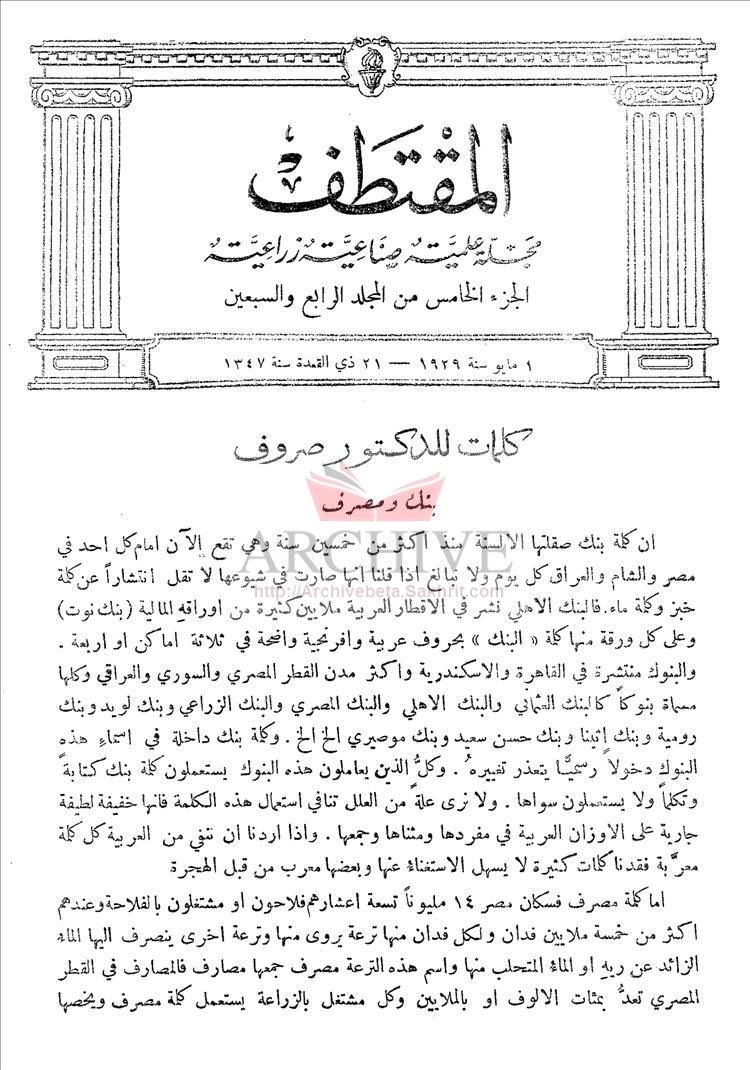 المقتطف
مجلة علمية صناعية زراعية
الجزء الخامس من المجلد الرابع والسبعين
١ مايو سنة ١٩٢٩ — ٢١ ذي القعدة سنة ١٣٤٧
كلمات للدكتور صروف
بنك ومصرف
ARCHIVE
http://Archivebeta.Sakhrit.com
ان كلمة بنك صقلتها الالسنة منذ اكثر من خمسين سنة وهي تقع الآن امام كل احد في
مصر والشام والعراق كل يوم ولا نبالغ اذا قلنا انها صارت في شيوعها لا تقل انتشاراً عن كلمة
خبز وكلمة ماء. فالبنك الاهلي نشر في الاقطار العربية ملايين كثيرة من اوراقهِ المالية (بنك نوت)
وعلى كل ورقة منها كلمة « البنك » بحروف عربية وافرنجية واضحة في ثلاثة اماكن او اربعة .
والبنوك منتشرة في القاهرة والاسكندرية واكثر مدن القطر المصري والسوري والعراقي وكلها
مسماة بنوكاً كالبنك العثماني والبنك الاهلي والبنك المصري والبنك الزراعي وبنك لويد وبنك
رومية وبنك اثينا وبنك حسن سعيد وبنك موصيري الخ الخ . وكلمة بنك داخلة في اسماءِ هذهِ
البنوك دخولاً رسميًّا يتعذر تغييرهُ . وكلُّ الذين يعاملون هذه البنوك يستعملون كلمة بنك كتابةً
وتكلماً ولا يستعملون سواها . ولا نرى علةً من العلل تنافي استعمال هذه الكلمة فانها خفيفة لطيفة
جارية على الاوزان العربية في مفردها ومثناها وجمعها . واذا اردنا ان ننفي من العربية كل كلمة
معرَّبة فقدنا كلمات كثيرة لا يسهل الاستغناءُ عنها وبعضها معرب من قبل الهجرة
اما كلمة مصرف فسكان مصر ١٤ مليوناً تسعة اعشارهم فلاحون او مشتغلون بالفلاحة وعندهم
اكثر من خمسة ملايين فدان ولكل فدان منها ترعة يروى منها وترعة اخرى ينصرف اليها الماءُ
الزائد عن ريهِ او الماءُ المتحلب منها واسم هذه الترعة مصرف جمعها مصارف فالمصارف في القطر
المصري تعدُّ بمئات الالوف او بالملايين وكل مشتغل بالزراعة يستعمل كلمة مصرف ويخصها